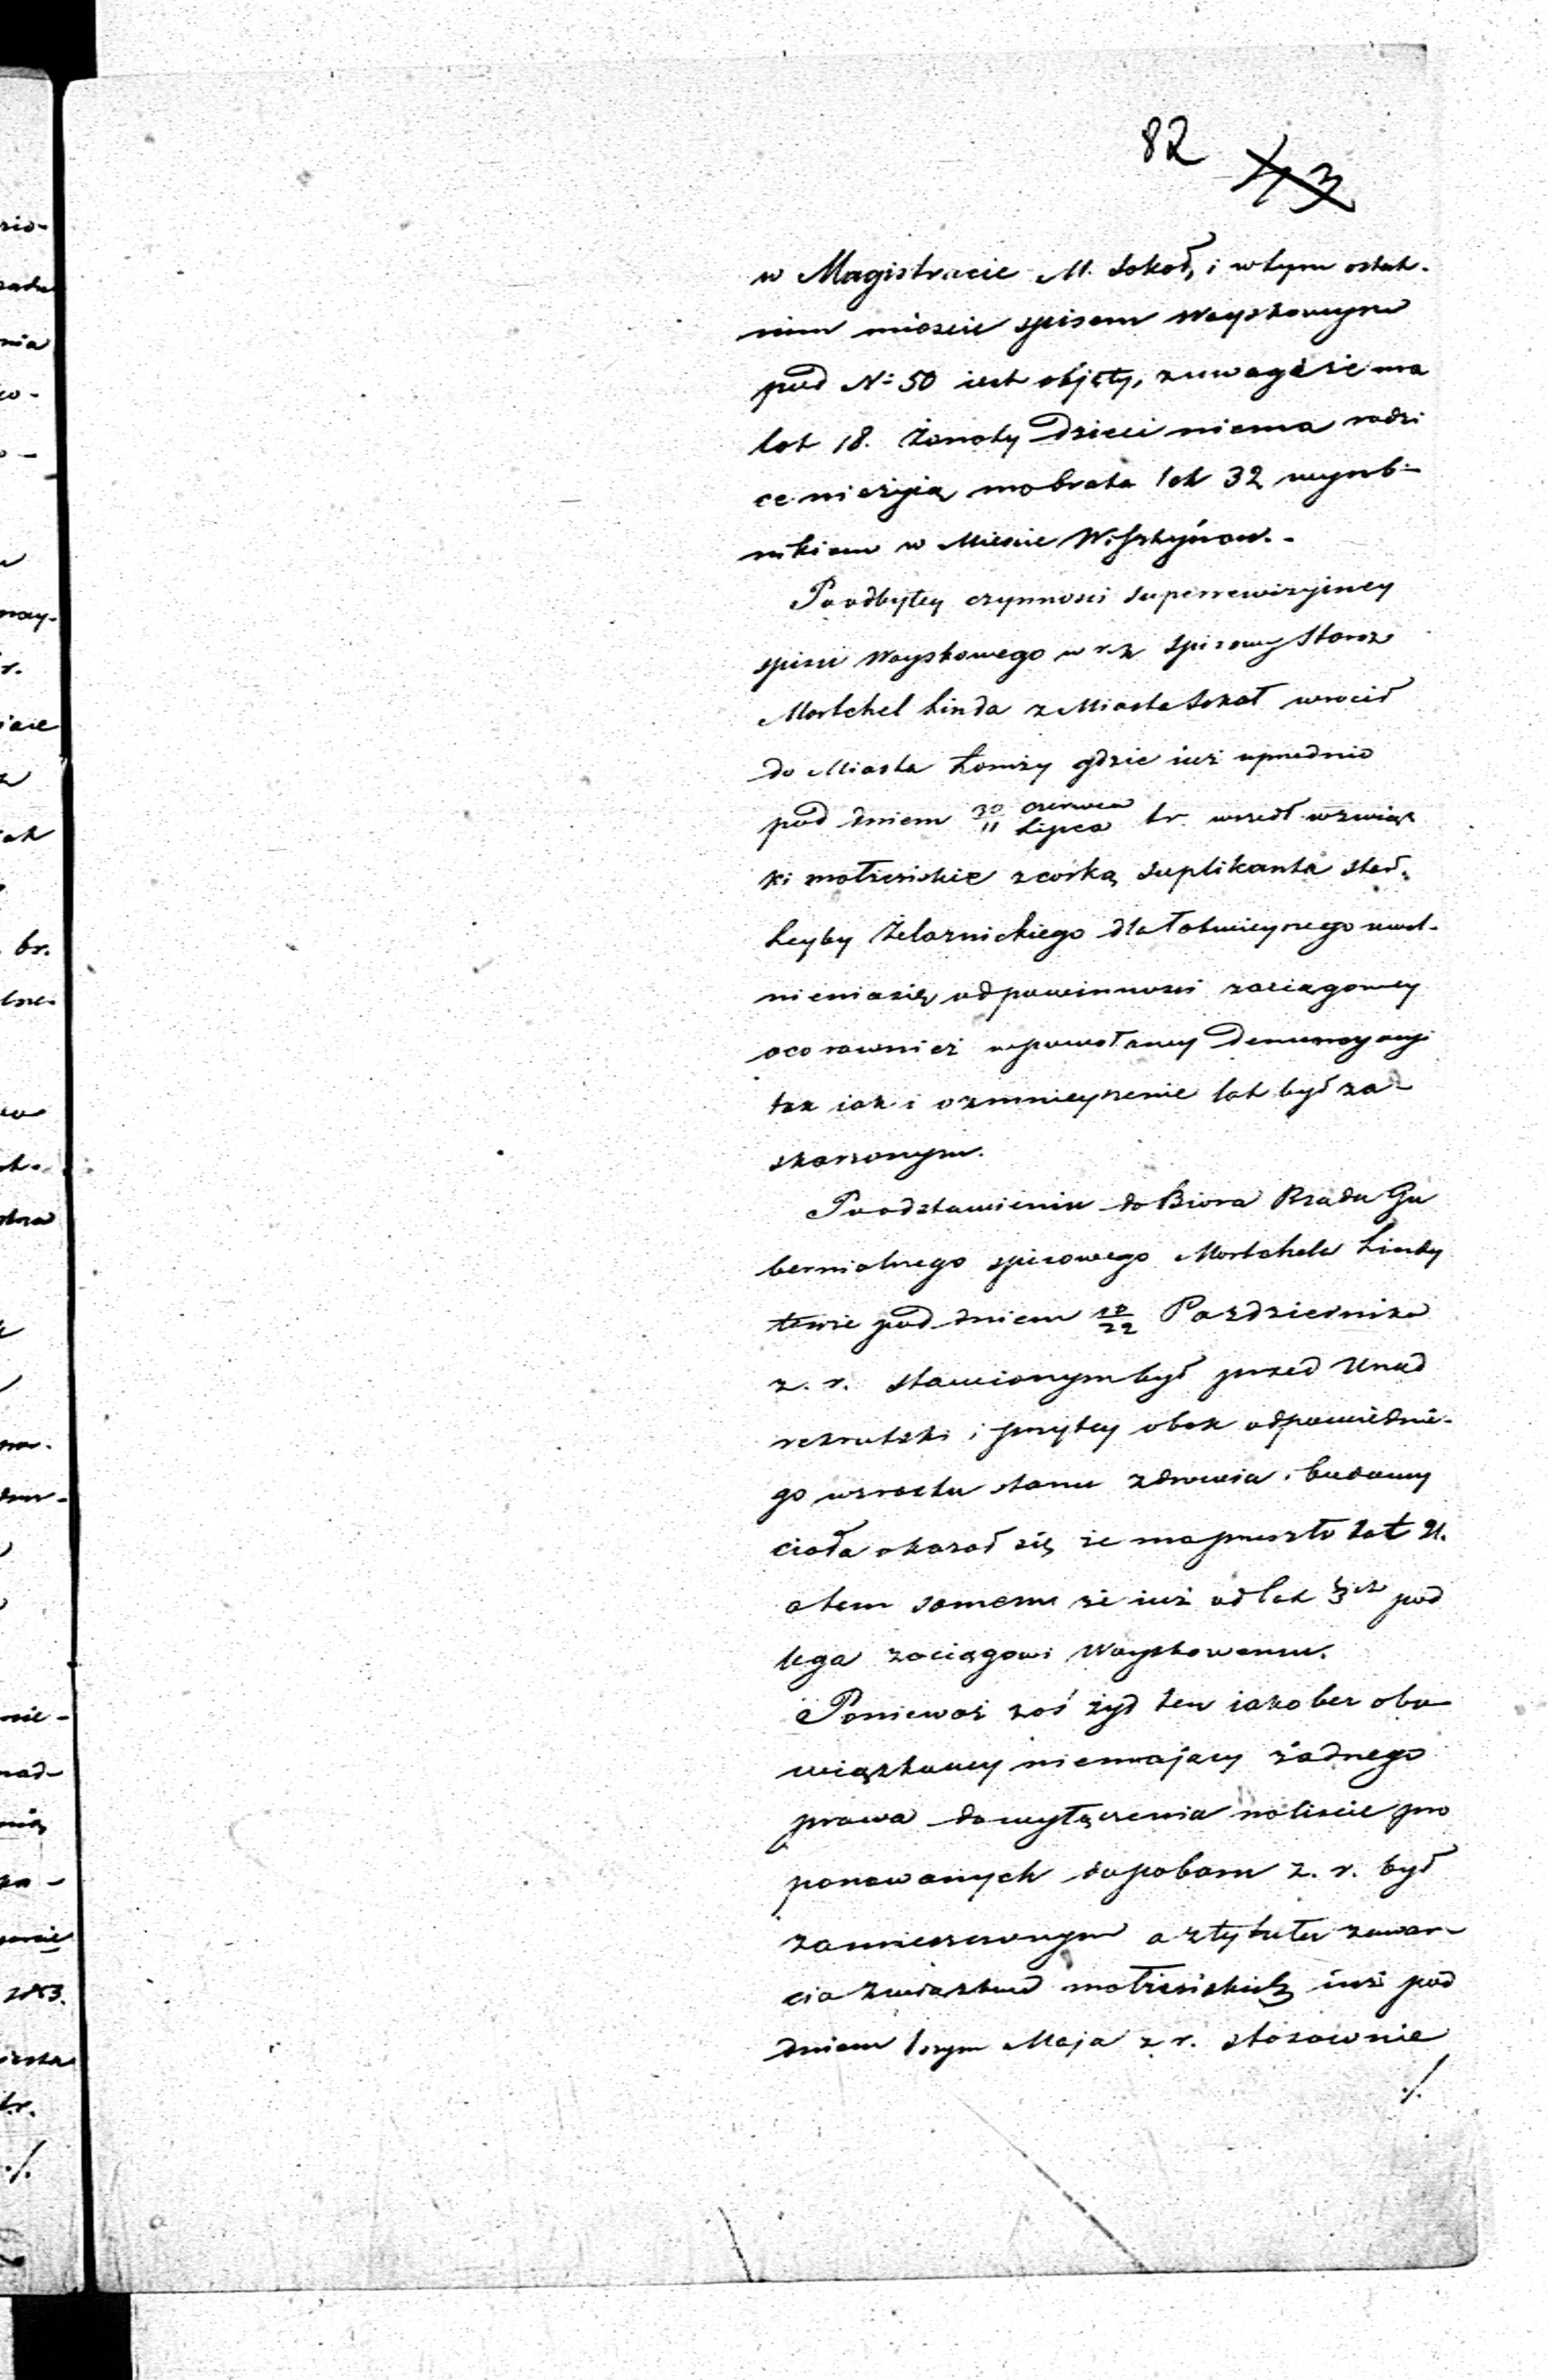 82 43
w Magistracie M. Sokoł, i w tym ostat-
nim mieście spisem Woyskowym
pod No 50 iest objęty, z uwagą że ma
lat 18. Żonaty Dzieci niema rodzi
ce nieżyią ma brata lat 32 wyrob-
nikiem w Mieście Wisztyńcu. -
Po odbytey czynności superrewizyiney
spisu Woyskowego w r. z. spisowy Staroz
Mortchel Linda z Miasta Sokoł wrócił
do Miasta Łomży gdzie iuż uprzednio
pod dniem 30 Czerwca / 11 Lipca br. wszedł w związ
ki małżeńskie z córką Suplikanta Star.
Leyby Żelaznickiego dla łatwieyszego uwol-
nienia się od powinności zaciągowey
oco rownież w powołaney Denuncyacyi
tak iak i o zmnieyszenie lat był za-
skarżonym.
Po odstawieniu do Biora Rządu Gu
bernialnego spisowego Mortchela Lindy
tenże pod dniem 10/22 Pazdziernika
z. r. stawionym był przed Urząd
rekrutski i przy tey obok odpowiednie-
go wzrostu stanu zdrowia i budowy
ciała okazał się że ma przeszło lat 21.
a tem samem że iuż od lat 3ch pod
lega zaciągowi Woyskowemu.
Ponieważ zaś żyd ten iako bez obo
wiązkowy niemaiący żadnego
prawa do wyłączenia na liście pro
ponowanych do poboru z. r. był
zamieszczonym a z tytułu zawar-
cia związków małżeńskich iuż pod
dniem 1szym Maja z r. stosownie
./.
nia
r.
br.
./.